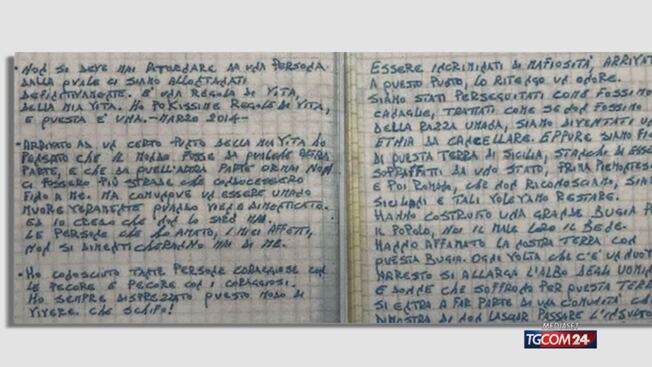 • NON SI DEVE MAI RITORNARE DA UNA PERSONA
DALLA QUALE CI SIAMO ALLONTANATI
DEFINITIVAMENTE. E' UNA REGOLA DI VITA,
DELLA MIA VITA. HO POKISSIME REGOLE DI VITA,
E QUESTA E' UNA. - MARZO 2014 -
• ARRIVATO AD UN CERTO PUNTO DELLA MIA VITA HO
PENSATO CHE IL MONDO FOSSE DA QUALCHE ALTRA
PARTE, E CHE DA QUELL'ALTRA PARTE ORMAI NON
CI FOSSERO PIÙ STRADE CHE CONDUCESSERO
FINO A ME. MA COMUNQUE UN ESSERE UMANO
MUORE VERAMENTE QUANDO VIENE DIMENTICATO.
ED IO CREDO CHE NON LO SARÒ MAI.
LE PERSONE CHE HO AMATO, I MIEI AFFETTI,
NON SI DIMENTICHERANNO MAI DI ME.
• HO CONOSCIUTO TANTE PERSONE CORAGGIOSE CON
LE PECORE E PECORE CON I CORAGGIOSI.
HO SEMPRE DISPREZZATO QUESTO MODO DI
VIVERE. CHE SCHIFO!
ESSERE INCRIMINATI DI MAFIOSITÀ, ARRIVAT
A QUESTO PUNTO, LO RITENGO UN ONORE.
SIAMO STATI PERSEGUITATI COME FOSSIMO
CANAGLIE, TRATTATI COME SE NON FOSSIMO
DELLA RAZZA UMANA, SIAMO DIVENTATI UN
ETNIA DA CANCELLARE. EPPURE SIAMO FI
DI QUESTA TERRA DI SICILIA, STANCHI DI ESSE
SOPRAFFATTI DA UNO STATO, PRIMA PIEMONTESE
E POI ROMANO, CHE NON RICONOSCIAMO, SIAM
SICILIANI E TALI VOLEVAMO RESTARE.
HANNO COSTRUITO UNA GRANDE BUGIA P
IL POPOLO, NOI IL MALE LORO IL BENE.
HANNO AFFAMATO LA NOSTRA TERRA CON
QUESTA BUGIA. OGNI VOLTA CHE C'È UN NUOV
ARRESTO SI ALLARGA L'ALBO DEGLI UOMIN
E DONNE CHE SOFFRONO PER QUESTA TERR
SI ENTRA A FAR PARTE DI UNA COMUNITÀ CH
DIMOSTRA DI NON LASCIAR PASSARE L'INSULTO
MEDIASET
TGCOM24